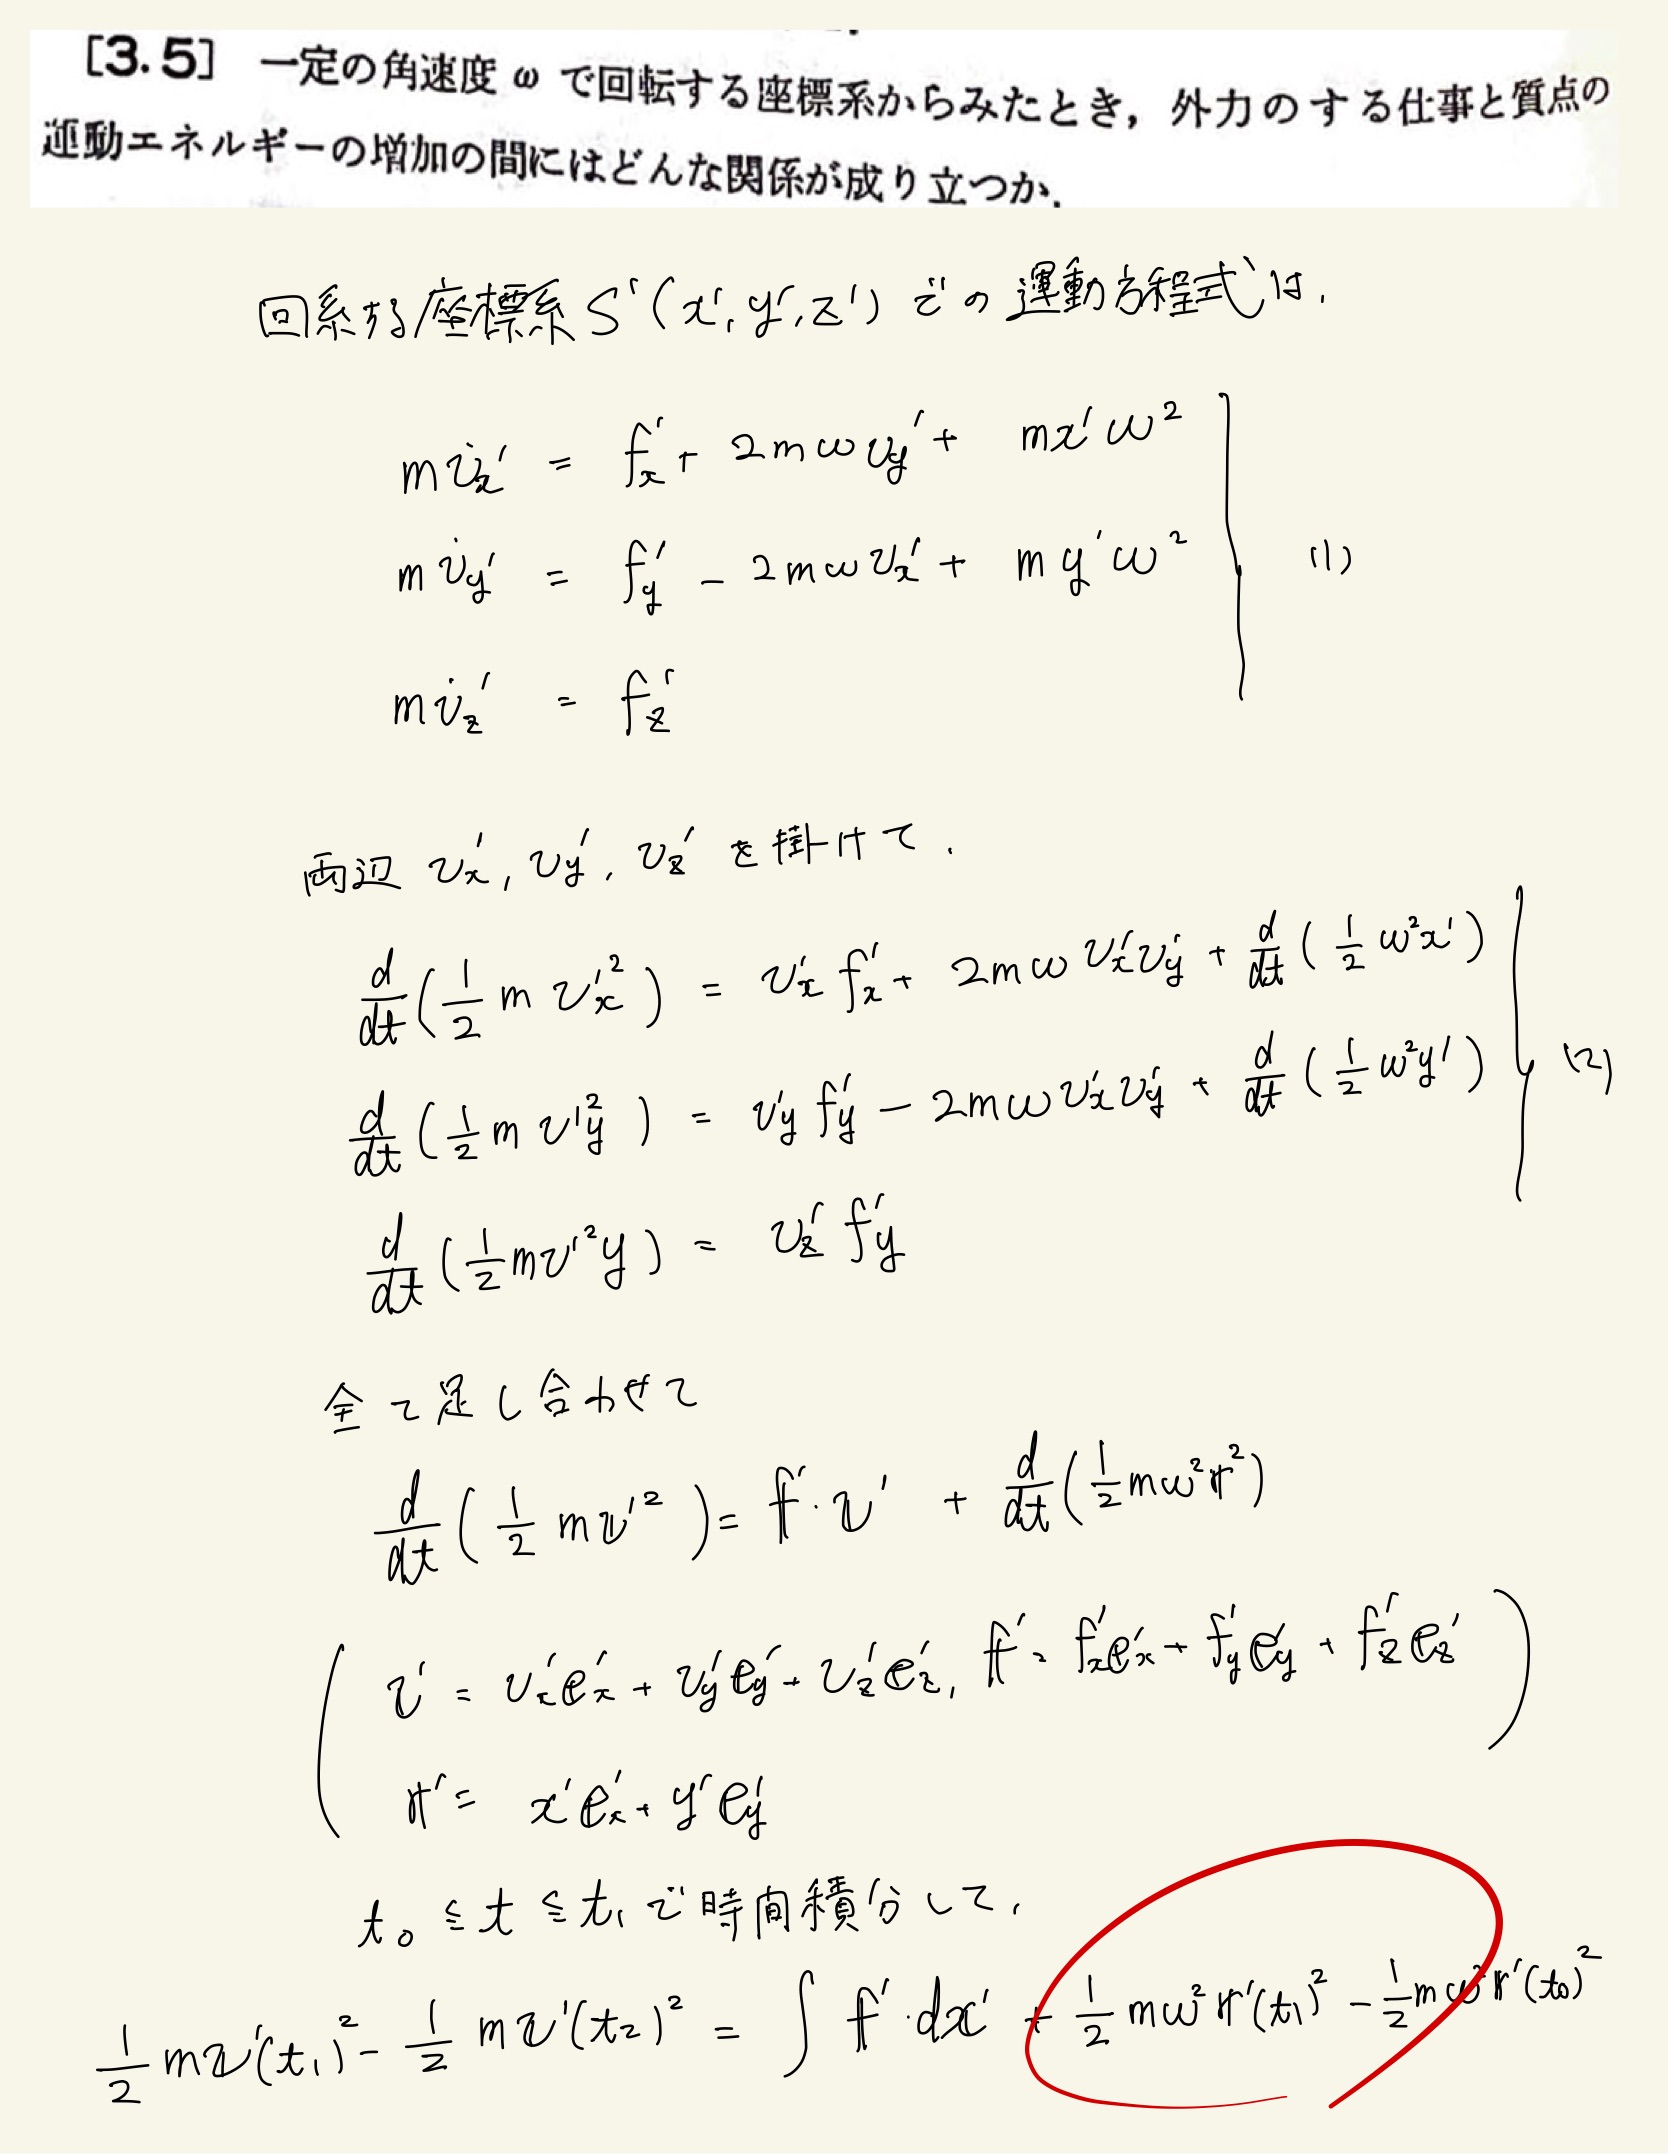 [3.5] 一定の角速度 ω で回転する座標系からみたとき，外力のする仕事と質点の
運動エネルギーの増加の間にはどんな関係が成り立つか．
回系する座標系 S'(x', y', z') での運動方程式は,
mv̇x' = fx' + 2mωvy' + mx'ω²
mv̇y' = fy' - 2mωvx' + my'ω² (1)
mv̇z' = fz'
両辺 vx', vy', vz' を掛けて.
d/dt(1/2 m vx'²) = vx' fx' + 2mω vx'vy' + d/dt(1/2 ω²x')
d/dt(1/2 m v'y²) = v'y f'y - 2mω vx'vy' + d/dt(1/2 ω²y') (2)
d/dt(1/2 mv'²y) = vz' f'y
全て足し合わせて
d/dt(1/2 mv'²) = f'·v' + d/dt(1/2 mω²r'²)
v' = vx'ex' + vy'ey' + vz'ez', f' = fx'ex' + fy'ey' + fz'ez'
r' = x'ex' + y'ey'
t₀ ≦ t ≦ t₁ で時間積分して,
1/2 mv'(t₁)² - 1/2 mv'(t₂)² = ∫ f'·dx' + 1/2 mω²r'(t₁)² - 1/2 mω²r'(t₀)²